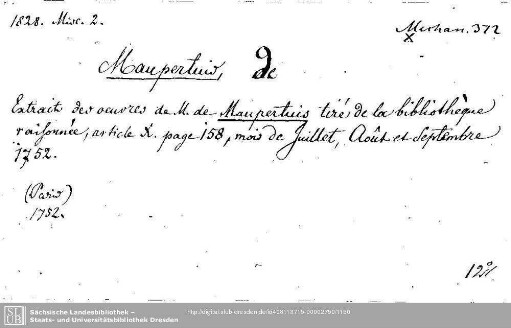 1828. Misc. 2.
Mechan. 372
x
Maupertuis, de
Extrait des oeuvres de M. de Maupertuis tiré de la bibliothèque
raisonnée, article X. page 158, mois de Juillet, Août et Septembre
1752.
(Paris)
1752.
12°
Sächsische Landesbibliothek –
Staats- und Universitätsbibliothek Dresden